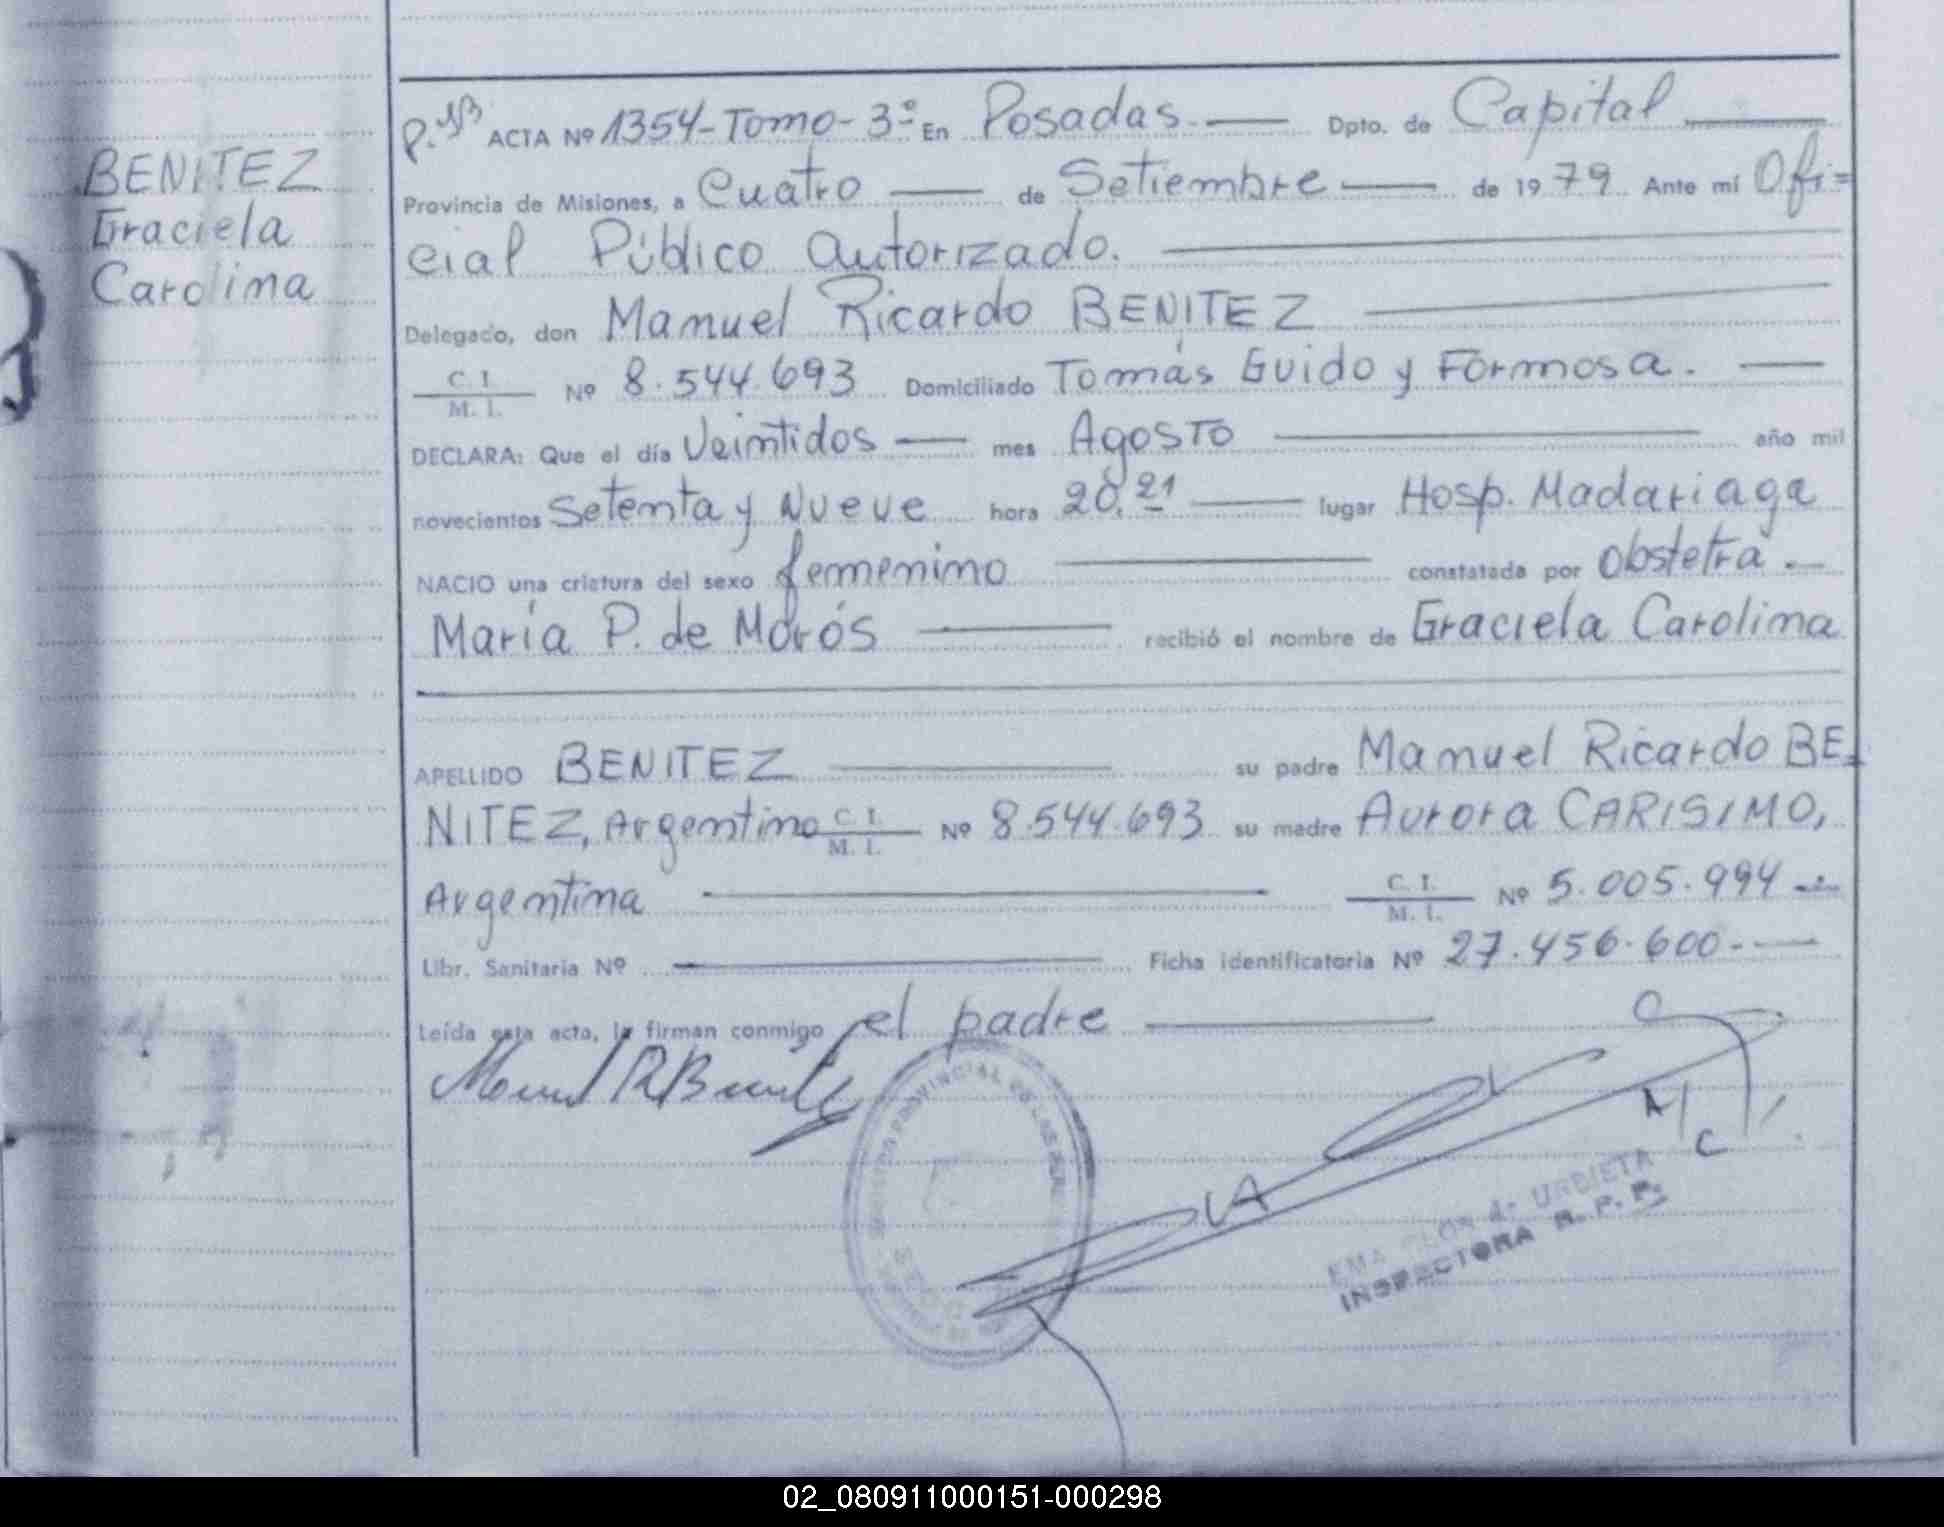 BENITEZ
Graciela
Carolina
ACTA Nº 1354-Tomo-3º En Posadas Dpto. de Capital
Provincia de Misiones, a Cuatro de Setiembre de 1979 Ante mí Ofi=
cial Público Autorizado.
Delegado, don Manuel Ricardo BENITEZ
C. I.
M. I. Nº 8.544.693 Domiciliado Tomás Guido y Formosa.
DECLARA: Que el día Veintidos mes Agosto año mil
novecientos Setenta y Nueve hora 20,21 lugar Hosp. Madariaga
NACIO una criatura del sexo femenino constatada por obstetra.
María P. de Morós recibió el nombre de Graciela Carolina
APELLIDO BENITEZ su padre Manuel Ricardo BE=
NITEZ, Argentino C. I. M. I. Nº 8.544.693 su madre Aurora CARISIMO,
Argentina C. I. M. I. Nº 5.005.994
Libr. Sanitaria Nº Ficha identificatoria Nº 27.456.600.
Leída esta acta, la firman conmigo el padre
PROVINCIAL DE LAS PERSONAS
EMA FLOR de URBIETA
INSPECTORA R. P. P.
02_080911000151-000298